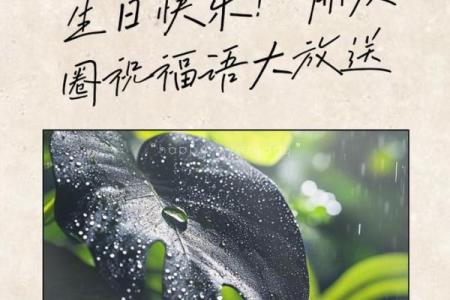 生日快乐！朋友
圈祝福语大放送
"happy birthday"